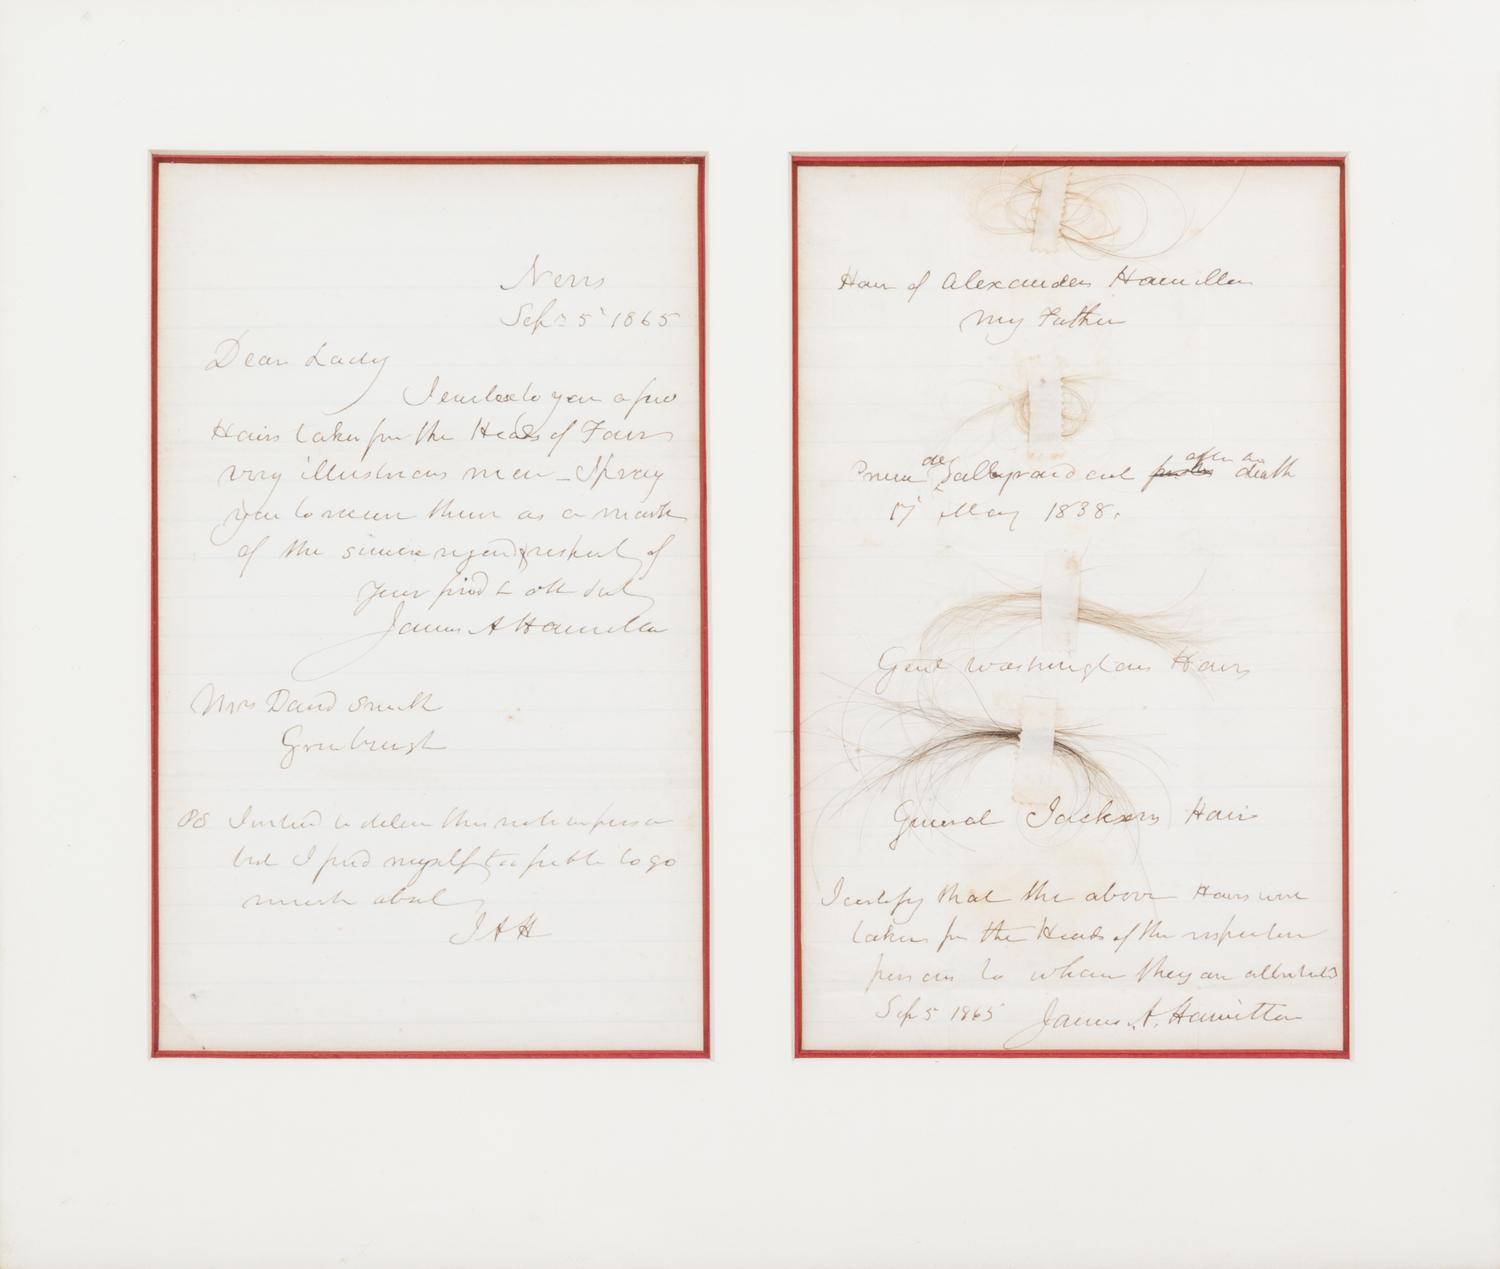 Nevis
Sept 5 1865
Dear Lady
I enclose to you a few
Hairs taken from the Heads of Four
very illustrious men _ I pray
you to receive them as a mark
of the sincere regard & respect of
Your friend & obt svt
James A Hamilton
Mrs David Smith
PS I intend to deliver this note in person
but I find myself too feeble to go
much about
JAH
Hair of Alexander Hamilton
My Father
Prince de Talleyrand cut after his death
17 May 1838.
Genl Washingtons Hairs
General Jacksons Hair
I certify that the above Hairs were
taken from the Heads of the respective
persons to whom they are attributed
Sep 5 1865 James A. Hamilton